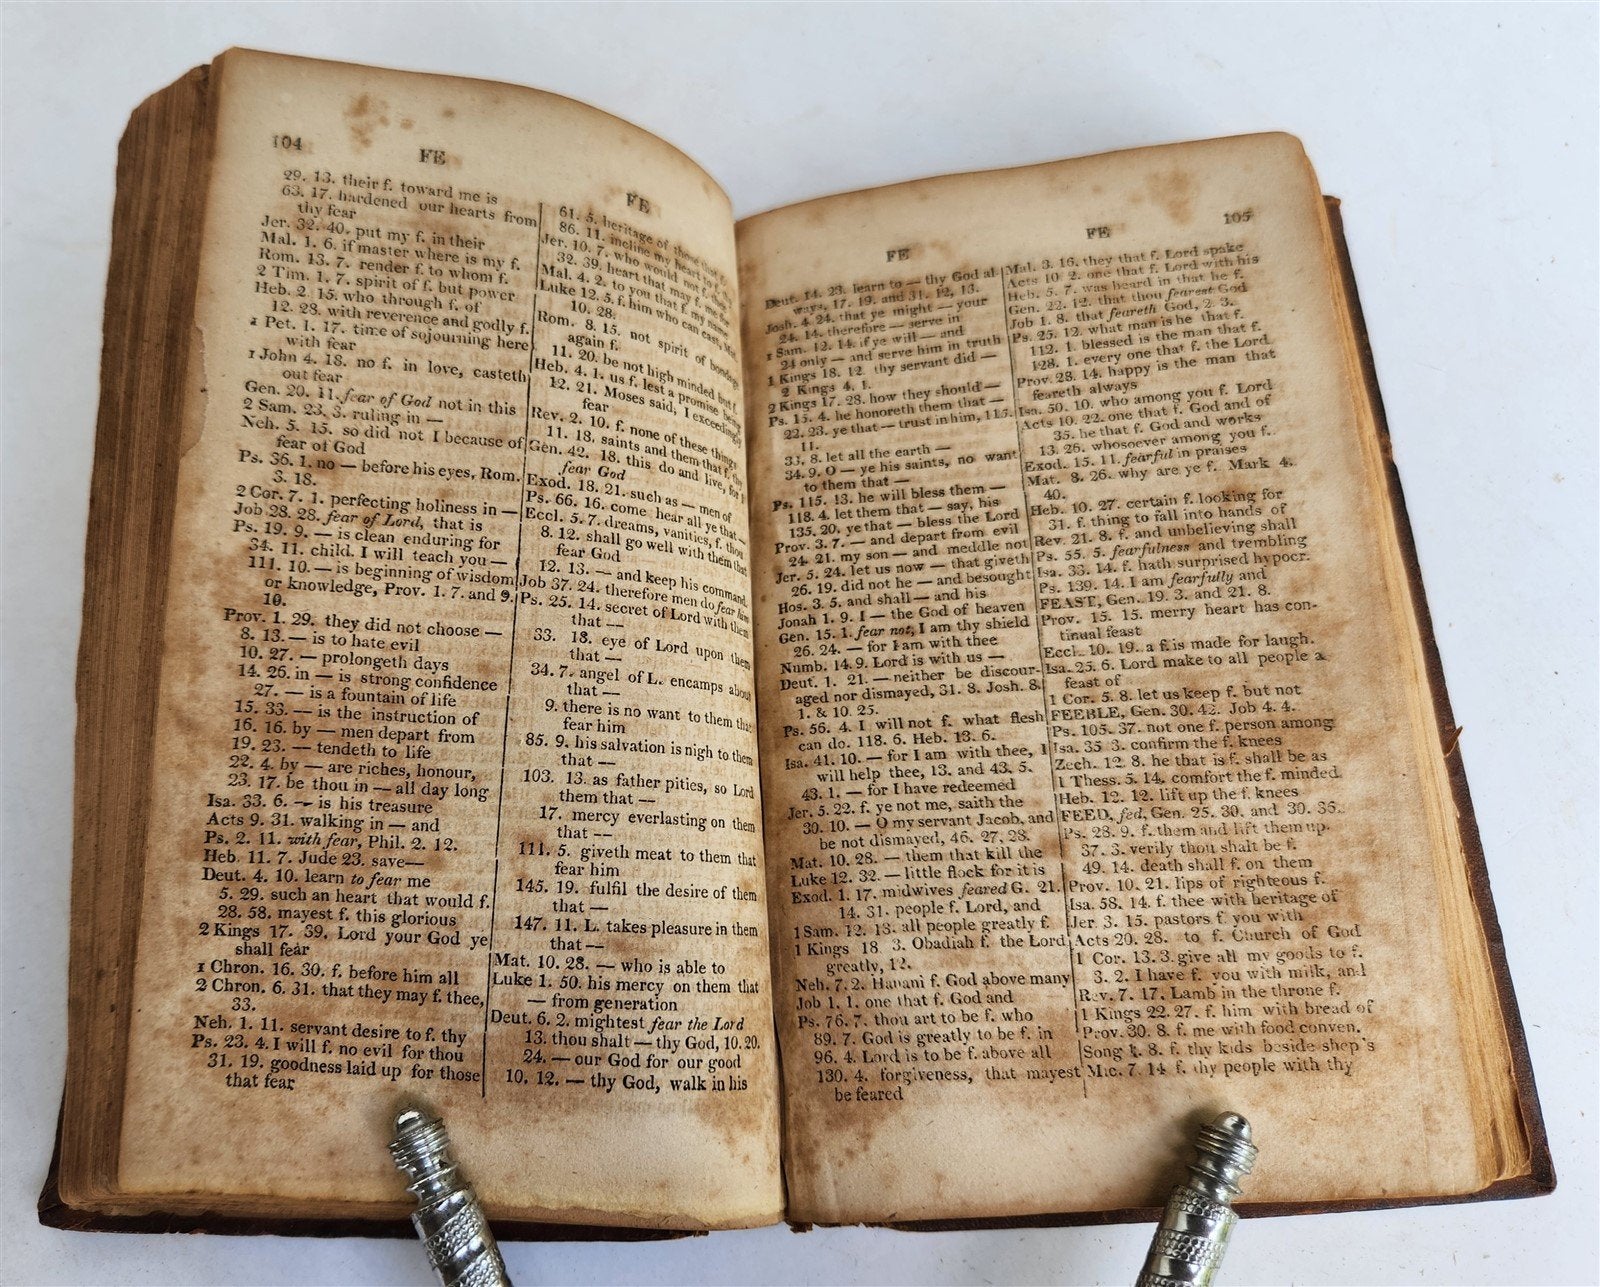 104
FE
FE
29. 13. their f. toward me is
63. 17. hardened our hearts from
thy fear
Jer. 32. 40. put my f. in their
Mal. 1. 6. if master where is my f.
Rom. 13. 7. render f. to whom f.
2 Tim. 1. 7. spirit of f. but power
Heb. 2. 15. who through f. of
12. 28. with reverence and godly f.
1 Pet. 1. 17. time of sojourning here
with fear
1 John 4. 18. no f. in love, casteth
out fear
Gen. 20. 11. fear of God not in this
2 Sam. 23. 3. ruling in —
Neh. 5. 15. so did not I because of
fear of God
Ps. 36. 1. no — before his eyes, Rom.
3. 18.
2 Cor. 7. 1. perfecting holiness in —
Job 28. 28. fear of Lord, that is
Ps. 19. 9. — is clean enduring for
34. 11. child. I will teach you —
111. 10. — is beginning of wisdom
or knowledge, Prov. 1. 7. and 9.
10.
Prov. 1. 29. they did not choose —
8. 13. — is to hate evil
10. 27. — prolongeth days
14. 26. in — is strong confidence
27. — is a fountain of life
15. 33. — is the instruction of
16. 16. by — men depart from
19. 23. — tendeth to life
22. 4. by — are riches, honour,
23. 17. be thou in — all day long
Isa. 33. 6. — is his treasure
Acts 9. 31. walking in — and
Ps. 2. 11. with fear, Phil. 2. 12.
Heb. 11. 7. Jude 23. save—
Deut. 4. 10. learn to fear me
5. 29. such an heart that would f.
28. 58. mayest f. this glorious
2 Kings 17. 39. Lord your God ye
shall fear
1 Chron. 16. 30. f. before him all
2 Chron. 6. 31. that they may f. thee,
33.
Neh. 1. 11. servant desire to f. thy
Ps. 23. 4. I will f. no evil for thou
31. 19. goodness laid up for those
that fear
61. 5. heritage of those that f.
86. 11. incline my heart to f.
Jer. 10. 7. who would not f. thee
32. 39. heart that may f. me for
Mal. 4. 2. to you that f. my name
Luke 12. 5. f. him who can cast, Mat.
10. 28.
Rom. 8. 15. not spirit of bondage
again f.
11. 20. be not high minded but f.
Heb. 4. 1. us f. lest a promise being
12. 21. Moses said, I exceedingly
fear
Rev. 2. 10. f. none of these things
11. 18. saints and them that f. thy
Gen. 42. 18. this do and live, for I
fear God
Exod. 18. 21. such as — men of
Ps. 66. 16. come hear all ye that —
Eccl. 5. 7. dreams, vanities, f. thou
8. 12. shall go well with them that
fear God
12. 13. — and keep his command.
Job 37. 24. therefore men do fear him
Ps. 25. 14. secret of Lord with them
that —
33. 18. eye of Lord upon them
that —
34. 7. angel of L. encamps about
that —
9. there is no want to them that
fear him
85. 9. his salvation is nigh to them
that —
103. 13. as father pities, so Lord
them that —
17. mercy everlasting on them
that —
111. 5. giveth meat to them that
fear him
145. 19. fulfil the desire of them
that —
147. 11. L. takes pleasure in them
that —
Mat. 10. 28. — who is able to
Luke 1. 50. his mercy on them that
— from generation
Deut. 6. 2. mightest fear the Lord
13. thou shalt — thy God, 10. 20.
24. — our God for our good
10. 12. — thy God, walk in his
FE
FE
105
Deut. 14. 23. learn to — thy God al-
ways, 17. 19. and 31. 12, 13.
Josh. 4. 24. that ye might — your
24. 14. therefore — serve in
1 Sam. 12. 14. if ye will — and
24 only — and serve him in truth
1 Kings 18. 12. thy servant did —
2 Kings 4. 1.
2 Kings 17. 28. how they should —
Ps. 15. 4. he honoreth them that —
22. 23. ye that — trust in him, 115.
11.
33. 8. let all the earth —
34. 9. O — ye his saints, no want
to them that —
Ps. 115. 13. he will bless them —
118. 4. let them that — say, his
135. 20. ye that — bless the Lord
Prov. 3. 7. — and depart from evil
24. 21. my son — and meddle not
Jer. 5. 24. let us now — that giveth
26. 19. did not he — and besought
Hos. 3. 5. and shall — and his
Jonah 1. 9. I — the God of heaven
Gen. 15. 1. fear not, I am thy shield
26. 24. — for I am with thee
Numb. 14. 9. Lord is with us —
Deut. 1. 21. — neither be discour-
aged nor dismayed, 31. 8. Josh. 8.
1. & 10. 25.
Ps. 56. 4. I will not f. what flesh
can do. 118. 6. Heb. 13. 6.
Isa. 41. 10. — for I am with thee, I
will help thee, 13. and 43. 5.
43. 1. — for I have redeemed
Jer. 5. 22. f. ye not me, saith the
30. 10. — O my servant Jacob, and
be not dismayed, 46. 27, 28.
Mat. 10. 28. — them that kill the
Luke 12. 32. — little flock for it is
Exod. 1. 17. midwives feared G. 21.
14. 31. people f. Lord, and
1 Sam. 12. 18. all people greatly f.
1 Kings 18. 3. Obadiah f. the Lord
greatly, 12.
Neh. 7. 2. Hanani f. God above many
Job 1. 1. one that f. God and
Ps. 76. 7. thou art to be f. who
89. 7. God is greatly to be f. in
96. 4. Lord is to be f. above all
130. 4. forgiveness, that mayest
be feared
Mal. 3. 16. they that f. Lord spake
Acts 10. 2. one that f. Lord with his
Heb. 5. 7. was heard in that he f.
Gen. 22. 12. that thou fearest God
Job 1. 8. that feareth God, 2. 3.
Ps. 25. 12. what man is he that f.
112. 1. blessed is the man that f.
128. 1. every one that f. the Lord
Prov. 28. 14. happy is the man that
feareth always
Isa. 50. 10. who among you f. Lord
Acts 10. 22. one that f. God and of
35. he that f. God and works
13. 26. whosoever among you f.
Exod. 15. 11. fearful in praises
Mat. 8. 26. why are ye f. Mark 4.
40.
Heb. 10. 27. certain f. looking for
31. f. thing to fall into hands of
Rev. 21. 8. f. and unbelieving shall
Ps. 55. 5. fearfulness and trembling
Isa. 33. 14. f. hath surprised hypocr.
Ps. 139. 14. I am fearfully and
FEAST, Gen. 19. 3. and 21. 8.
Prov. 15. 15. merry heart has con-
tinual feast
Eccl. 10. 19. a f. is made for laugh.
Isa. 25. 6. Lord make to all people a
feast of
1 Cor. 5. 8. let us keep f. but not
FEEBLE, Gen. 30. 42. Job 4. 4.
Ps. 105. 37. not one f. person among
Isa. 35 3. confirm the f. knees
Zech. 12. 8. he that is f. shall be as
1 Thess. 5. 14. comfort the f. minded
Heb. 12. 12. lift up the f. knees
FEED, fed, Gen. 25. 30. and 30. 36.
Ps. 28. 9. f. them and lift them up.
37. 3. verily thou shalt be f.
49. 14. death shall f. on them
Prov. 10. 21. lips of righteous f.
Isa. 58. 14. f. thee with heritage of
Jer. 3. 15. pastors f. you with
Acts 20. 28. to f. Church of God
1 Cor. 13. 3. give all my goods to f.
3. 2. I have f. you with milk, and
Rev. 7. 17. Lamb in the throne f.
1 Kings 22. 27. f. him with bread of
Prov. 30. 8. f. me with food conven.
Song 1. 8. f. thy kids beside shep's
Mic. 7. 14 f. thy people with thy